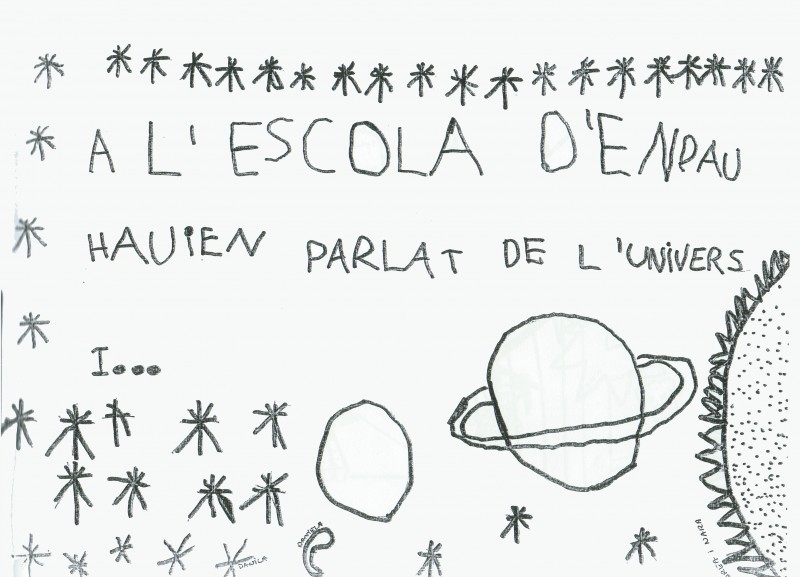 A L'ESCOLA D'ENPAU
HAUIEN PARLAT DE L'UNIVERS
I...
DANIELA
DANILA
I NARA